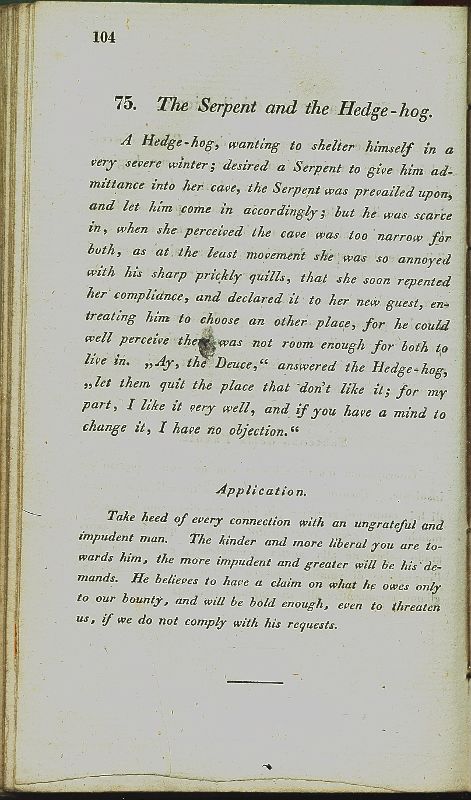 104
75. The Serpent and the Hedge-hog.
A Hedge-hog, wanting to shelter himself in a
very severe winter; desired a Serpent to give him ad-
mittance into her cave, the Serpent was prevailed upon,
and let him come in accordingly; but he was scarce
in, when she perceived the cave was too narrow for
both, as at the least movement she was so annoyed
with his sharp prickly quills, that she soon repented
her compliance, and declared it to her new guest, en-
treating him to choose an other place, for he could
well perceive there was not room enough for both to
live in. „Ay, the Deuce,“ answered the Hedge-hog,
„let them quit the place that don't like it; for my
part, I like it very well, and if you have a mind to
change it, I have no objection.“
Application.
Take heed of every connection with an ungrateful and
impudent man. The kinder and more liberal you are to-
wards him, the more impudent and greater will be his de-
mands. He believes to have a claim on what he owes only
to our bounty, and will be bold enough, even to threaten
us, if we do not comply with his requests.